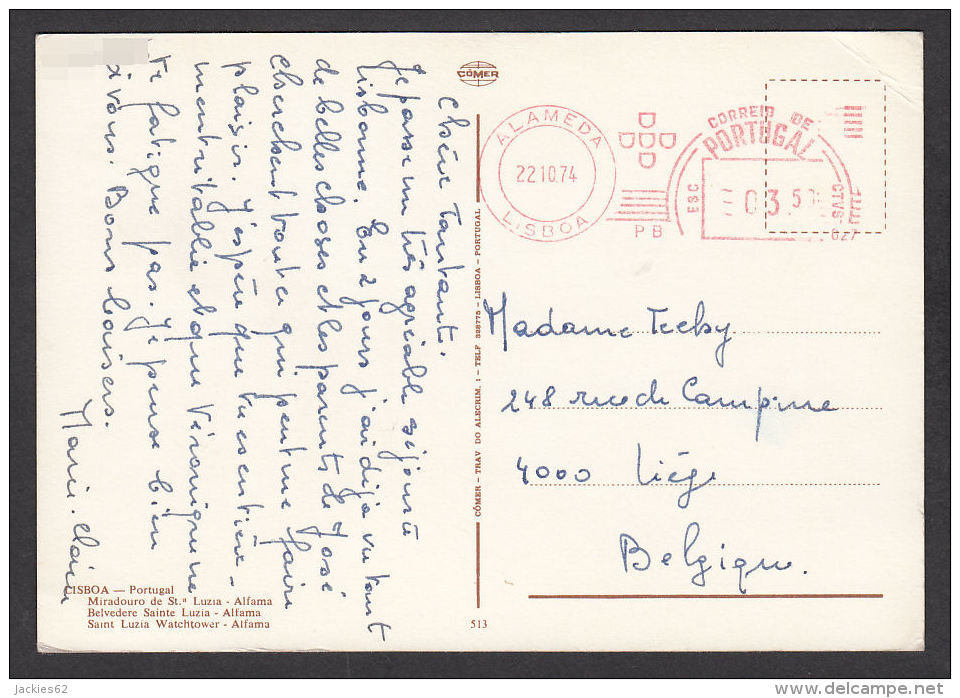 Chère Tantante.
Je passe un très agréable séjour à
Lisbonne. En 2 jours j'ai déjà vu tant
de belles choses et les parents de José
cherchent tout ce qui peut me faire
plaisir. J'espère que tu es entièrement
rétablie et que Véronique ne
te fatigue pas. Je pense bien
à vous. Bons baisers.
Marie-Claire
CÓMER
ALAMEDA
22 10.74
LISBOA
P B
CORREIO DE
PORTUGAL
ESC
03 50
CTVS
027
Madame Feeby
248 rue de Campine
4000 Liège
Belgique.
CÓMER - TRAV DO ALECRIM, 1 - TELF 328775 - LISBOA - PORTUGAL
LISBOA — Portugal
Miradouro de St.ª Luzia - Alfama
Belvedere Sainte Luzia - Alfama
Saint Luzia Watchtower - Alfama
513
jackies62
www.delcampe.net